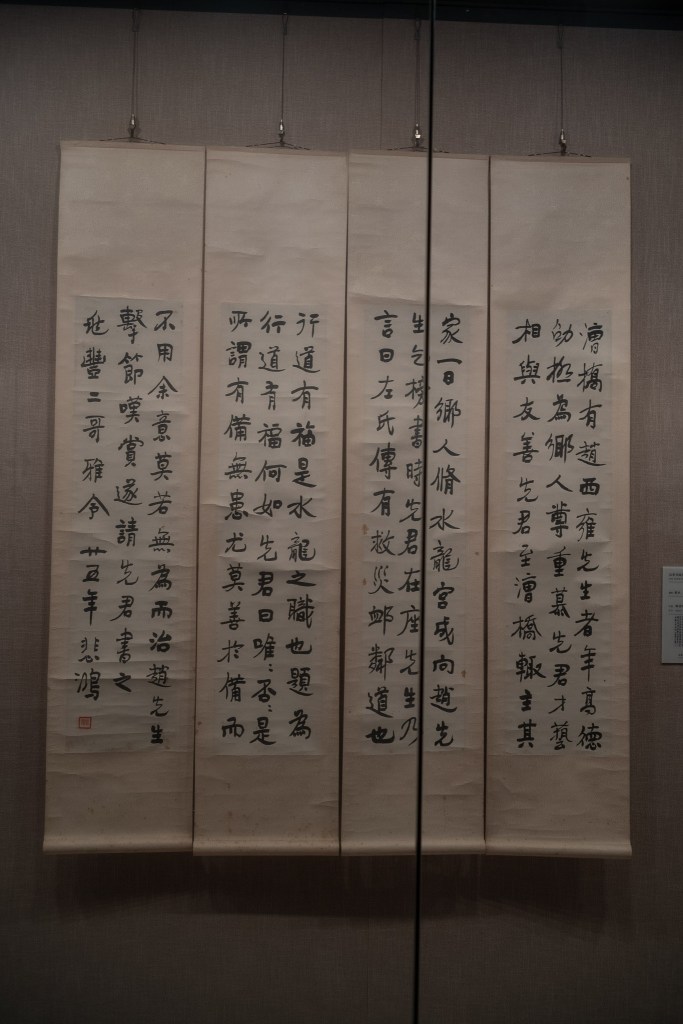 漕橋有趙西雍先生者年高德
劭極為鄉人尊重慕先君才藝
相與友善先君至漕橋輒主其
家一日鄉人脩水龍宮成向趙先
生乞榜書時先君在座先生乃
言曰左氏傳有救災卹鄰道也
行道有福是水龍之職也題為
行道有福何如先君曰唯〻否〻是
所謂有備無患尤莫善於備而
不用余意莫若無為而治趙先生
擊節嘆賞遂請先君書之
豐二哥雅令廿五年悲鴻